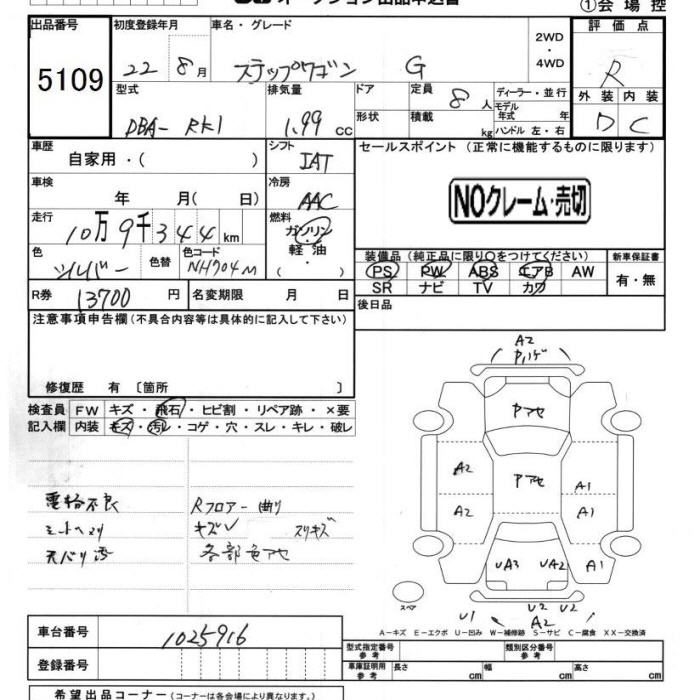 オークション出品申込書
①会場控
出品番号
5109
初度登録年月
22 8月
車名・グレード
ステップワゴン G
2WD
・
4WD
評価点
R
外装 内装
D C
型式
DBA- RK1
排気量
1.99 cc
ドア
形状
定員
8人
積載
kg
ディーラー・並行
モデル
年式 年
ハンドル 左・右
車歴
自家用・( )
シフト
IAT
セールスポイント (正常に機能するものに限ります)
NOクレーム・売切
車検
年 月( 日)
冷房
AAC
走行
10万9千344km
燃料
ガソリン
軽油
( )
色
シルバー
色替
色コード
NH704M
装備品(純正品に限り○をつけてください)
PS PW ABS エアB AW
SR ナビ TV カワ
新車保証書
有・無
R券 13700 円
名変期限 月 日
後日品
注意事項申告欄(不具合内容等は具体的に記入して下さい)
修復歴 有〔箇所 〕
検査員
記入欄
FW キズ・飛石・ヒビ割・リペア跡・×要
内装 キズ・汚レ・コゲ・穴・スレ・キレ・破レ
Rフロアー曲り
キズ
スリキズ
各部色アセ
A2
Pハゲ
Pアセ
Pアセ
A2
A2
A1
A1
UA3
UA2
A1
スペア
U1
U2 U2
A2
A-キズ E-エクボ U-凹み W-補修跡 S-サビ C-腐食 XX-交換済
車台番号
1025916
登録番号
型式指定番号
参考
類別区分番号
参考
車庫証明用
参考
長さ cm
幅 cm
高さ cm
希望出品コーナー(コーナーは各会場により異なります。)